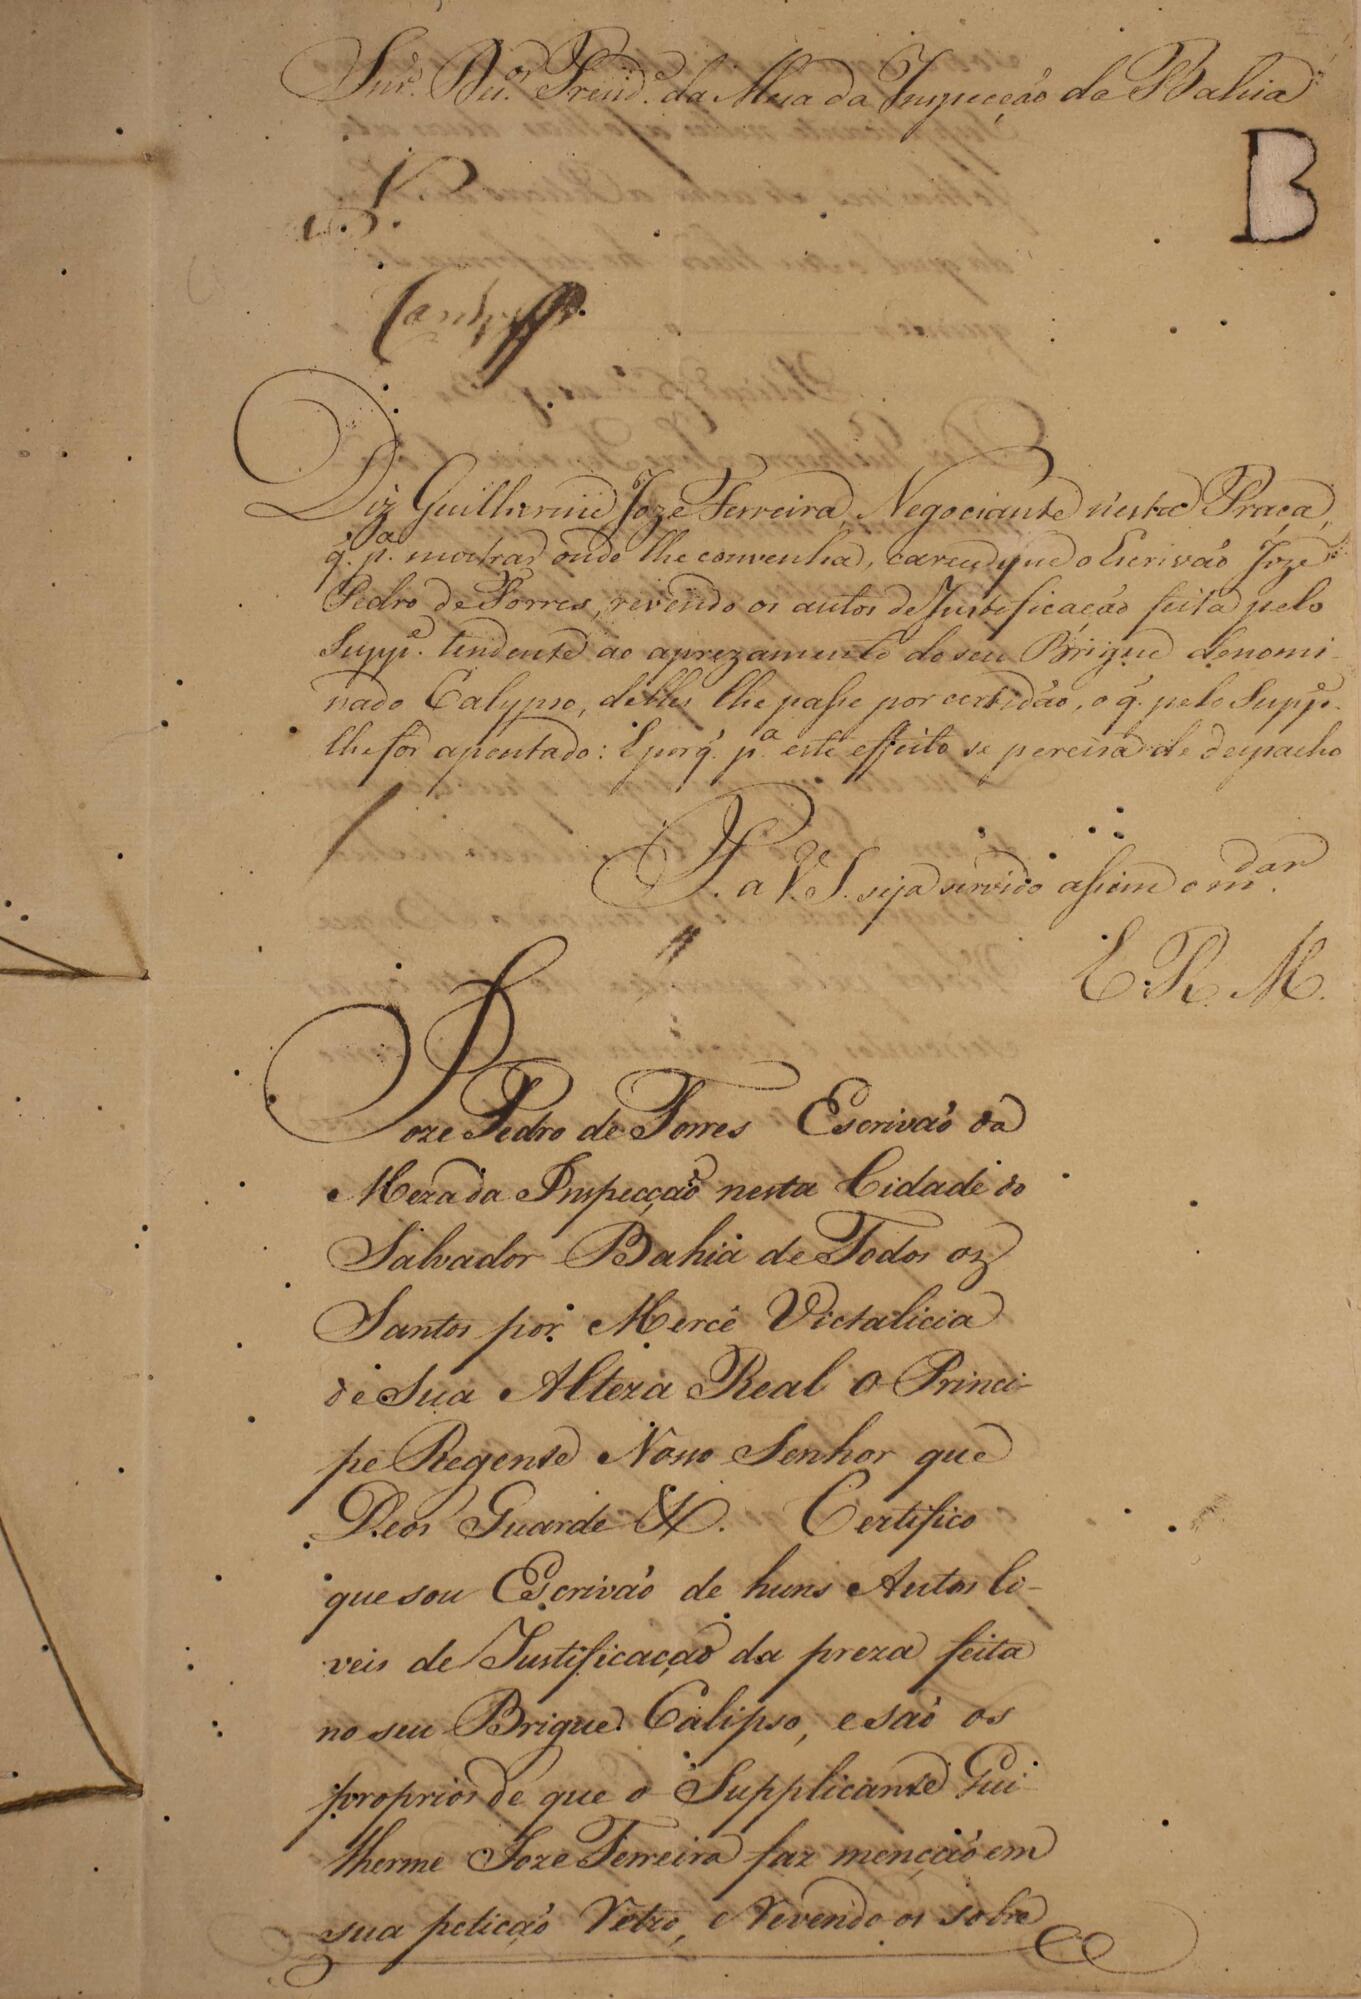 Snr. Dez.or Prezid.e da Meza da Inspecção da Bahia
B
P.
Diz Guilherme Joze Ferreira, Negociante nesta Praça,
q. p.a mostrar onde lhe convenha, carece que o Escrivão Joze
Pedro de Torres, revendo os autos de Justificação feita pelo
Supp.e tendente ao aprezamento do seu Brigue denomi-
nado Calypso, delles lhe passe por certidão, o q. pelo Supp.e
lhe for apontado: E porq. p.a este effeito se perciza de despacho
P. a V. S. seja servido assim o m.dar
E. R. M.
Joze Pedro de Torres Escrivão da
Meza da Inspecção nesta Cidade do
Salvador Bahia de Todos oz
Santos por Mercê Victalicia
de Sua Alteza Real O Princi-
pe Regente Nosso Senhor que
Deos Guarde &. Certifico
que sou Escrivão de huns Autos Ci-
veis de Justificação da preza feita
no seu Brigue Calipso, e são os
proprios de que o Supplicante Gui-
lherme Joze Ferreira faz menção em
sua petição retro, e revendo os sobre